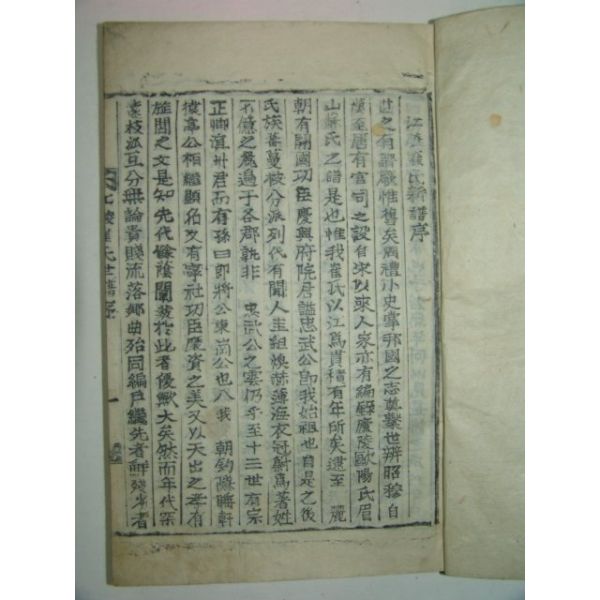 江陵崔氏新譜序
世之有譜厥惟舊矣周禮小史掌邦國之志奠繫世辨昭穆自
漢至唐有官司之設自宋以來人家亦有編廬陵歐陽氏眉
山蘇氏之譜是也惟我崔氏以江爲貫積有年所矣逮至 麗
朝有開國功臣慶興府院君謚忠武公卽我始祖也自是之後
氏族蕃蔓枝分派列代有聞人圭組煥赫薄海衣冠蔚爲著姓
不億之麗過于各郡孰非 忠武公之雲仍乎至十二世有宗
正卿 州君而有孫曰卽將公東崗公也入我 朝釣隱瞻軒
樓亭公相繼顯名又有寧社功臣 資之美又以天出之孝有
旌閭之文是知先代餘蔭闡發於此者優歟大矣然而年代深
遠枝派亘分無論貴賤流落鄕曲殆同編戶繼先者 殘 者
江陵崔氏世譜序
一